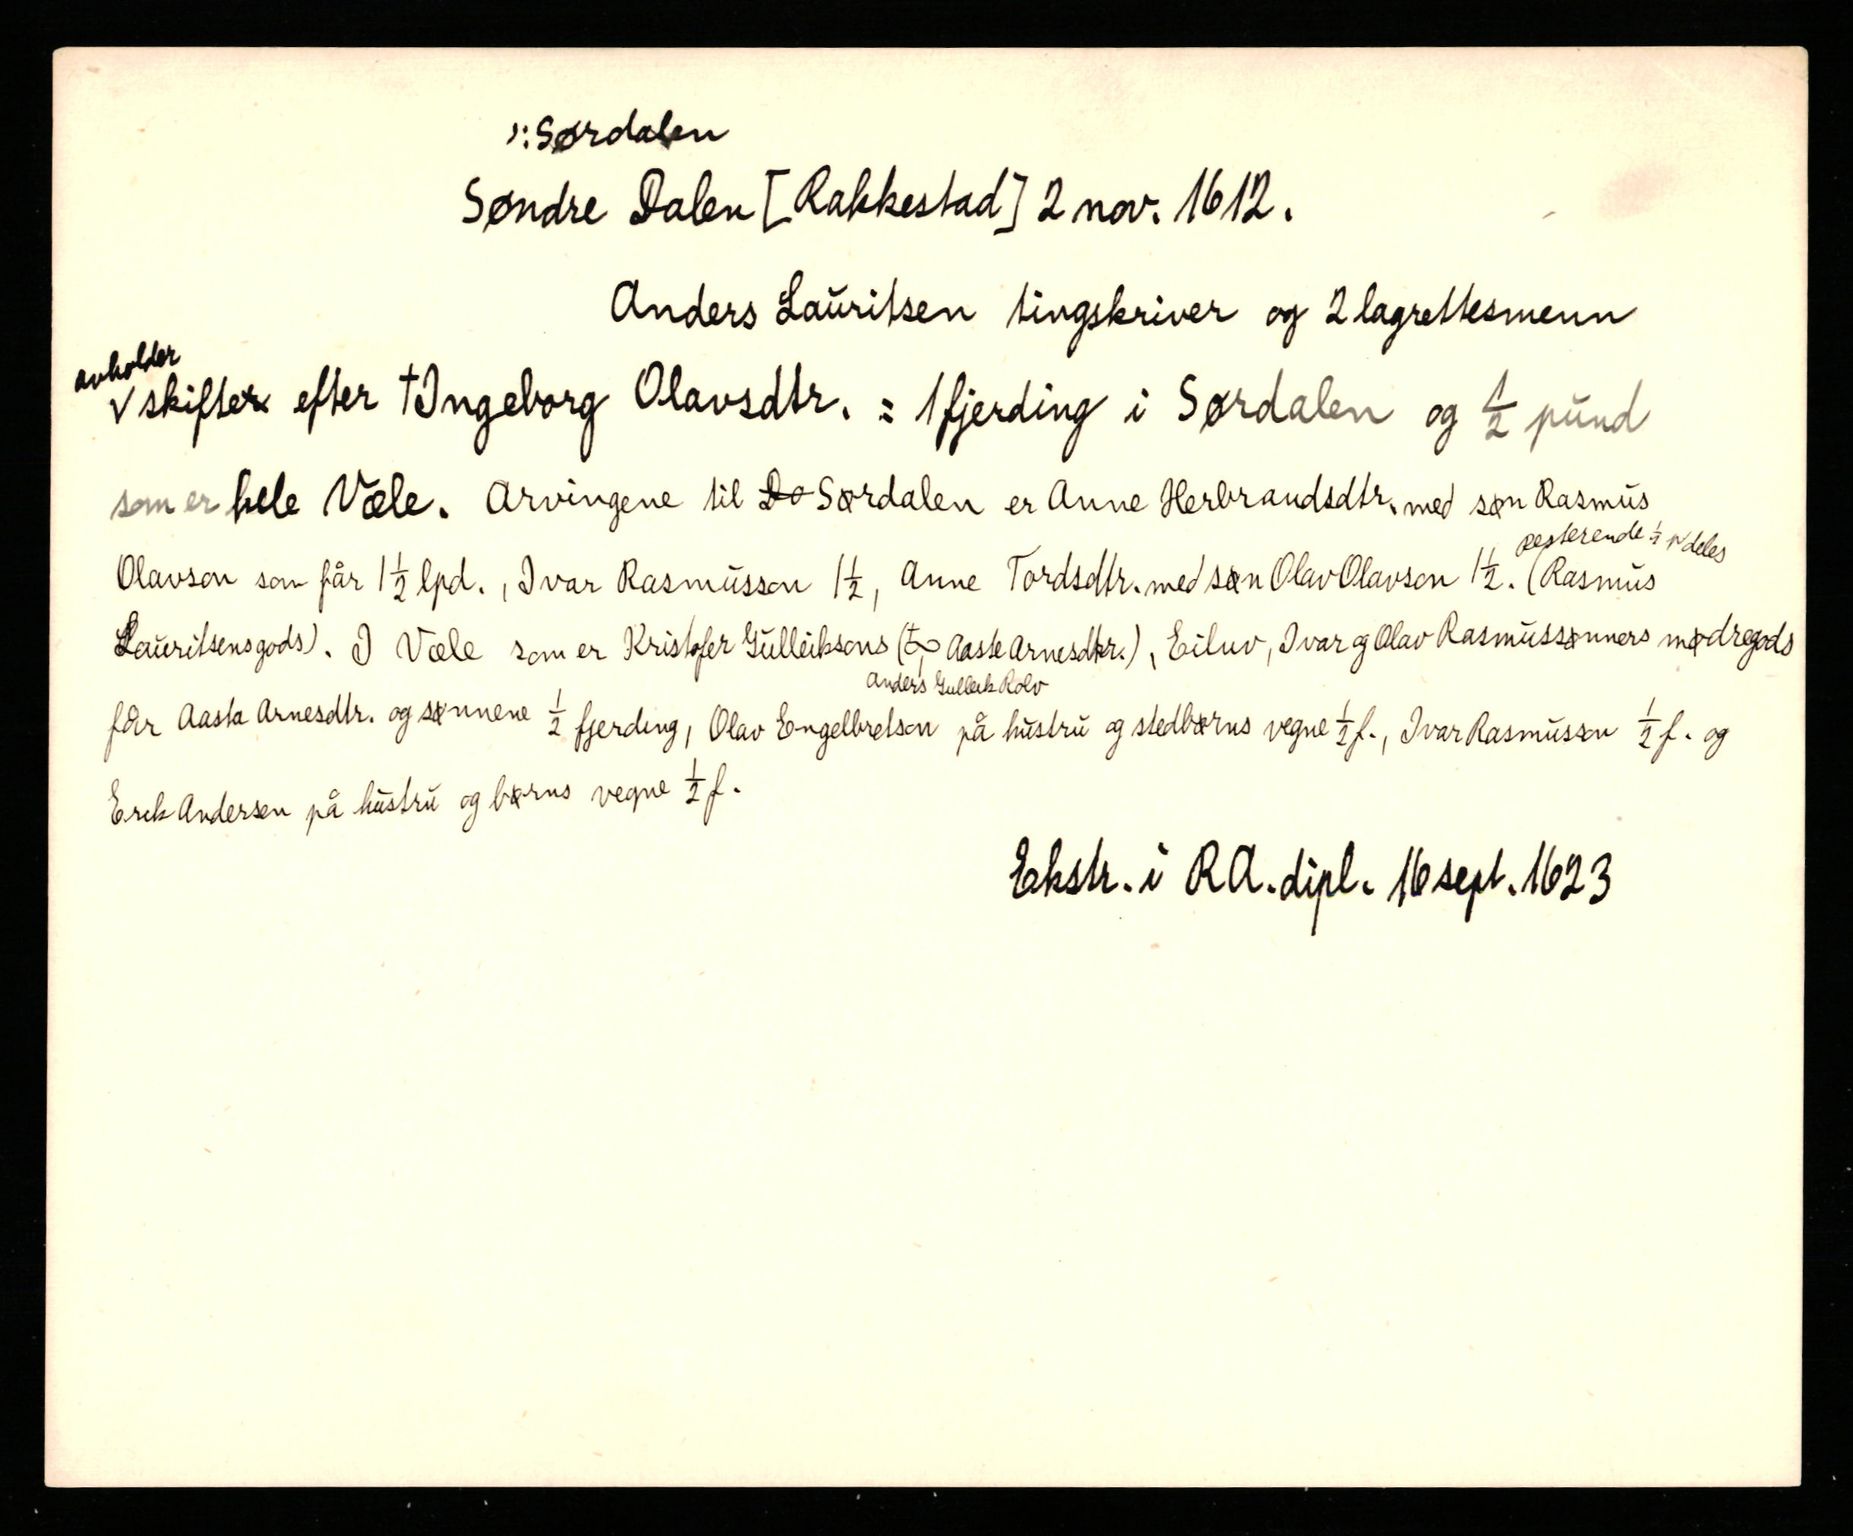 ɔ: Sørdalen
Søndre Dalen [Rakkestad] 2 nov. 1612.
Anders Lauritsen tingskriver og 2 lagrettesmenn
avholder
√ skifter efter †Ingeborg Olavsdtr. = 1 fjerding i Sørdalen og ½ pund
som er hele Væle. Arvingene til Do Sørdalen er Anne Herbrandsdtr. med søn Rasmus
resterende ½ p deles
Olavson som får 1½ lpd., Ivar Rasmusson 1½, Anne Tordsdtr. med søn Olav Olavson 1½. (Rasmus
Lauritsensgods). I Væle som er Kristofer Gulleiksons (†, ∞ Aaste Arnesdtr.), Eiluv, Ivar og Olav Rasmussønners mødregods
Anders Gulleik Rolv
får Aasta Arnesdtr. og sønnene ½ fjerding, Olav Engelbretson på hustru og stedbørns vegne ½ f., Ivar Rasmusson ½ f. og
Erik Andersen på hustru og børns vegne ½ f.
Ekstr. i RA. dipl. 16 sept. 1623